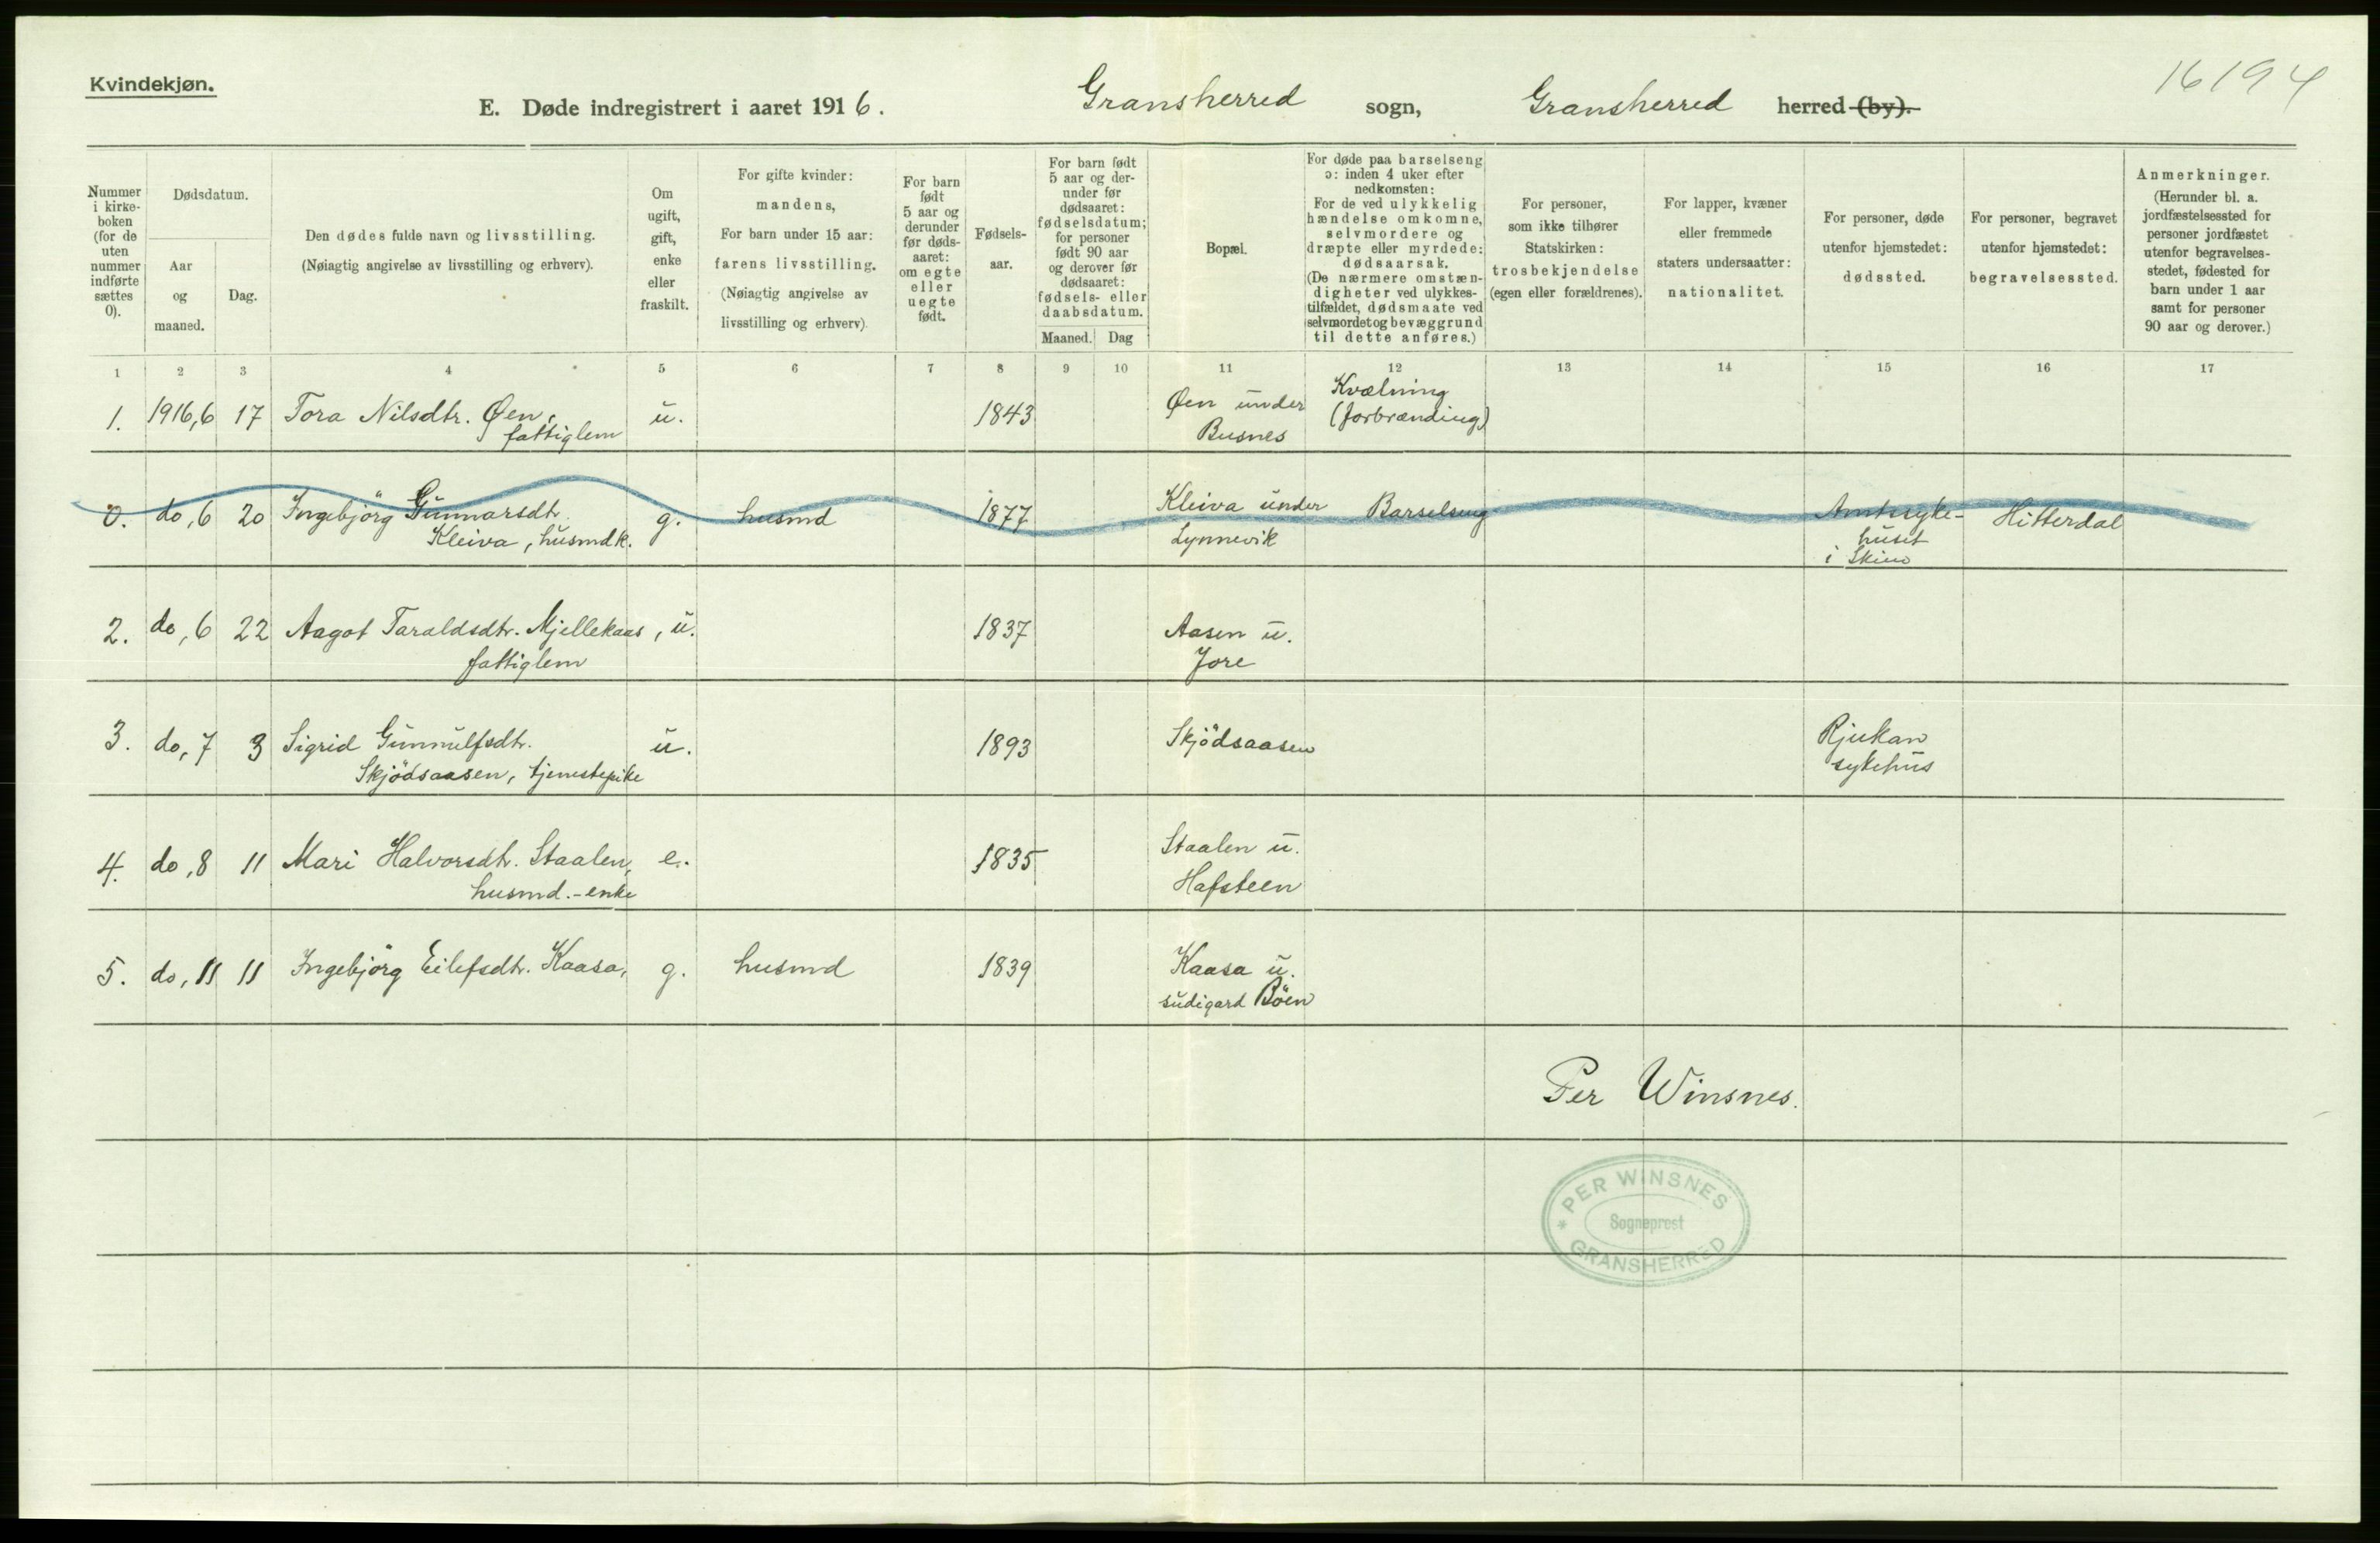 Kvindekjøn.
16194
E. Døde indregistrert i aaret 1916. Gransherred sogn, Gransherred herred (by).
Nummer i kirke-boken (for de uten nummer indførte sættes 0).
Dødsdatum.
Aar og maaned.
Dag.
Den dødes fulde navn og livsstilling.
(Nøiagtig angivelse av livsstilling og erhverv).
Om ugift, gift, enke eller fraskilt.
For gifte kvinder:
mandens,
For barn under 15 aar:
farens livsstilling.
(Nøiagtig angivelse av
livsstilling og erhverv).
For barn født 5 aar og derunder før døds-aaret: om egte eller uegte født.
Fødsels-aar.
For barn født 5 aar og der-under før dødsaaret: fødselsdatum; for personer født 90 aar og derover før dødsaaret: fødsels- eller daabsdatum.
Maaned. Dag
Bopæl.
For døde paa barselseng
ɔ: inden 4 uker efter
nedkomsten:
For de ved ulykkelig
hændelse omkomne,
selvmordere og
dræpte eller myrdede:
dødsaarsak.
(De nærmere omstæn-
digheter ved ulykkes-
tilfældet, dødsmaate ved
selvmordet og bevæggrund
til dette anføres.)
For personer,
som ikke tilhører
Statskirken:
trosbekjendelse
(egen eller forældrenes).
For lapper, kvæner
eller fremmede
staters undersaatter:
nationalitet.
For personer, døde
utenfor hjemstedet:
dødssted.
For personer, begravet
utenfor hjemstedet:
begravelsessted.
Anmerkninger.
(Herunder bl. a.
jordfæstelsessted for
personer jordfæstet
utenfor begravelses-
stedet, fødested for
barn under 1 aar
samt for personer
90 aar og derover.)
1 2 3 4 5 6 7 8 9 10 11 12 13 14 15 16 17
1. 1916,6 17 Tora Nilsdtr. Øen, u. 1843 Øen under Kvælning
fattiglem Busnes (forbrænding)
0. do,6 20 Ingebjörg Gunnarsdtr. g. husmd 1877 Kleiva under Barselseng Amtssyke- Hitterdal
Kleiva, husmdk. Lynnevik huset
i Skien
2. do,6 22 Aagot Taraldsdtr. Mjellekaas, u. 1837 Aasen u.
fattiglem Jore
3. do,7 3 Sigrid Gunnulfsdtr. u. 1893 Skjödsaasen Rjukan
Skjödsaasen, tjenestepike sykehus
4. do,8 11 Mari Halvorsdtr. Staalen, e. 1835 Staalen u.
husmd.-enke Hafsteen
5. do,11 11 Ingebjörg Eilefsdtr. Kaasa, g. husmd 1839 Kaasa u.
sudigard Böen
Per Winsnes.
* PER WINSNES
Sogneprest
GRANSHERRED